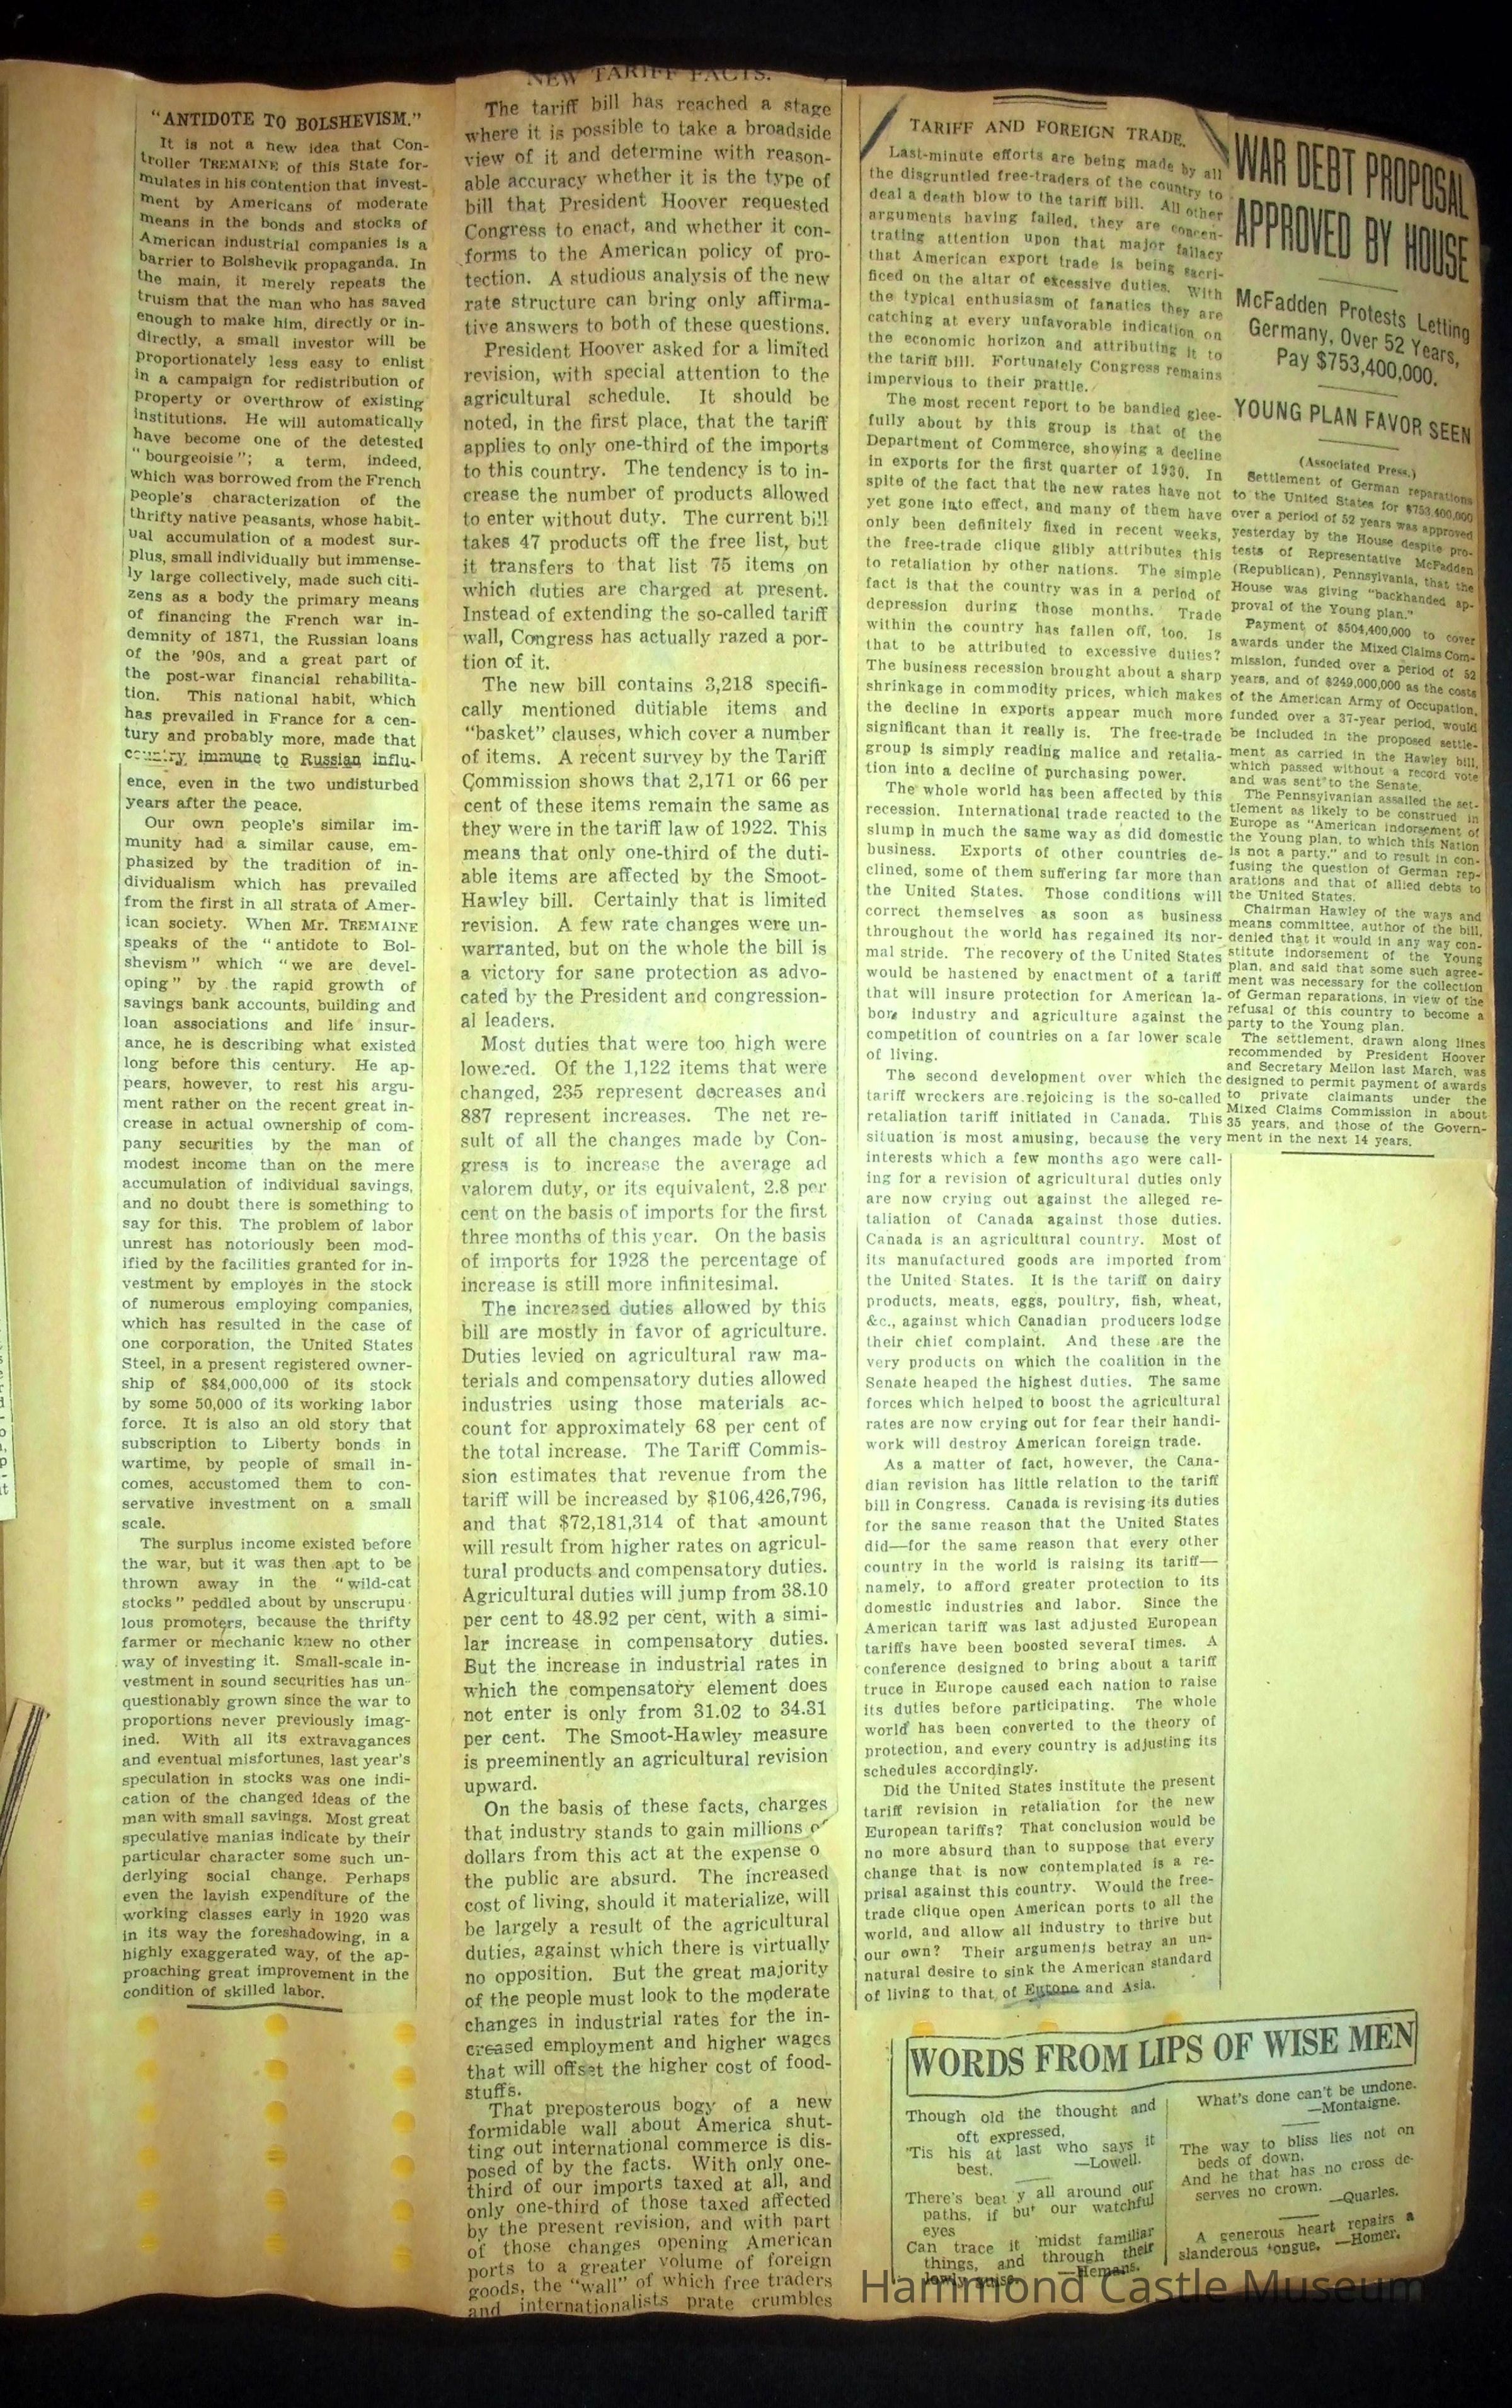 "ANTIDOTE TO BOLSHEVISM."
It is not a new idea that Con-
troller TREMAINE of this State for-
mulates in his contention that invest-
ment by Americans of moderate
means in the bonds and stocks of
American industrial companies is a
barrier to Bolshevik propaganda. In
the main, it merely repeats the
truism that the man who has saved
enough to make him, directly or in-
directly, a small investor will be
proportionately less easy to enlist
in a campaign for redistribution of
property or overthrow of existing
institutions. He will automatically
have become one of the detested
"bourgeoisie"; a term, indeed,
which was borrowed from the French
people's characterization of the
thrifty native peasants, whose habit-
ual accumulation of a modest sur-
plus, small individually but immense-
ly large collectively, made such citi-
zens as a body the primary means
of financing the French war in-
demnity of 1871, the Russian loans
of the '90s, and a great part of
the post-war financial rehabilita-
tion. This national habit, which
has prevailed in France for a cen-
tury and probably more, made that
country immune to Russian influ-
ence, even in the two undisturbed
years after the peace.
Our own people's similar im-
munity had a similar cause, em-
phasized by the tradition of in-
dividualism which has prevailed
from the first in all strata of Amer-
ican society. When Mr. TREMAINE
speaks of the "antidote to Bol-
shevism" which "we are devel-
oping" by the rapid growth of
savings bank accounts, building and
loan associations and life insur-
ance, he is describing what existed
long before this century. He ap-
pears, however, to rest his argu-
ment rather on the recent great in-
crease in actual ownership of com-
pany securities by the man of
modest income than on the mere
accumulation of individual savings,
and no doubt there is something to
say for this. The problem of labor
unrest has notoriously been mod-
ified by the facilities granted for in-
vestment by employes in the stock
of numerous employing companies,
which has resulted in the case of
one corporation, the United States
Steel, in a present registered owner-
ship of $84,000,000 of its stock
by some 50,000 of its working labor
force. It is also an old story that
subscription to Liberty bonds in
wartime, by people of small in-
comes, accustomed them to con-
servative investment on a small
scale.
The surplus income existed before
the war, but it was then apt to be
thrown away in the "wild-cat
stocks" peddled about by unscrupu-
lous promoters, because the thrifty
farmer or mechanic knew no other
way of investing it. Small-scale in-
vestment in sound securities has un-
questionably grown since the war to
proportions never previously imag-
ined. With all its extravagances
and eventual misfortunes, last year's
speculation in stocks was one indi-
cation of the changed ideas of the
man with small savings. Most great
speculative manias indicate by their
particular character some such un-
derlying social change. Perhaps
even the lavish expenditure of the
working classes early in 1920 was
in its way the foreshadowing, in a
highly exaggerated way, of the ap-
proaching great improvement in the
condition of skilled labor.
NEW TARIFF FACTS.
The tariff bill has reached a stage
where it is possible to take a broadside
view of it and determine with reason-
able accuracy whether it is the type of
bill that President Hoover requested
Congress to enact, and whether it con-
forms to the American policy of pro-
tection. A studious analysis of the new
rate structure can bring only affirma-
tive answers to both of these questions.
President Hoover asked for a limited
revision, with special attention to the
agricultural schedule. It should be
noted, in the first place, that the tariff
applies to only one-third of the imports
to this country. The tendency is to in-
crease the number of products allowed
to enter without duty. The current bill
takes 47 products off the free list, but
it transfers to that list 75 items on
which duties are charged at present.
Instead of extending the so-called tariff
wall, Congress has actually razed a por-
tion of it.
The new bill contains 3,218 specifi-
cally mentioned dutiable items and
"basket" clauses, which cover a number
of items. A recent survey by the Tariff
Commission shows that 2,171 or 66 per
cent of these items remain the same as
they were in the tariff law of 1922. This
means that only one-third of the duti-
able items are affected by the Smoot-
Hawley bill. Certainly that is limited
revision. A few rate changes were un-
warranted, but on the whole the bill is
a victory for sane protection as advo-
cated by the President and congression-
al leaders.
Most duties that were too high were
lowered. Of the 1,122 items that were
changed, 235 represent decreases and
887 represent increases. The net re-
sult of all the changes made by Con-
gress is to increase the average ad
valorem duty, or its equivalent, 2.8 per
cent on the basis of imports for the first
three months of this year. On the basis
of imports for 1928 the percentage of
increase is still more infinitesimal.
The increased duties allowed by this
bill are mostly in favor of agriculture.
Duties levied on agricultural raw ma-
terials and compensatory duties allowed
industries using those materials ac-
count for approximately 68 per cent of
the total increase. The Tariff Commis-
sion estimates that revenue from the
tariff will be increased by $106,426,796,
and that $72,181,314 of that amount
will result from higher rates on agricul-
tural products and compensatory duties.
Agricultural duties will jump from 38.10
per cent to 48.92 per cent, with a simi-
lar increase in compensatory duties.
But the increase in industrial rates in
which the compensatory element does
not enter is only from 31.02 to 34.31
per cent. The Smoot-Hawley measure
is preeminently an agricultural revision
upward.
On the basis of these facts, charges
that industry stands to gain millions of
dollars from this act at the expense o
the public are absurd. The increased
cost of living, should it materialize, will
be largely a result of the agricultural
duties, against which there is virtually
no opposition. But the great majority
of the people must look to the moderate
changes in industrial rates for the in-
creased employment and higher wages
that will offset the higher cost of food-
stuffs.
That preposterous bogy of a new
formidable wall about America shut-
ting out international commerce is dis-
posed of by the facts. With only one-
third of our imports taxed at all, and
only one-third of those taxed affected
by the present revision, and with part
of those changes opening American
ports to a greater volume of foreign
goods, the "wall" of which free traders
and internationalists prate crumbles
TARIFF AND FOREIGN TRADE.
Last-minute efforts are being made by all
the disgruntled free-traders of the country to
deal a death blow to the tariff bill. All other
arguments having failed, they are concen-
trating attention upon that major fallacy
that American export trade is being sacri-
ficed on the altar of excessive duties. With
the typical enthusiasm of fanatics they are
catching at every unfavorable indication on
the economic horizon and attributing it to
the tariff bill. Fortunately Congress remains
impervious to their prattle.
The most recent report to be bandied glee-
fully about by this group is that of the
Department of Commerce, showing a decline
in exports for the first quarter of 1930. In
spite of the fact that the new rates have not
yet gone into effect, and many of them have
only been definitely fixed in recent weeks,
the free-trade clique glibly attributes this
to retaliation by other nations. The simple
fact is that the country was in a period of
depression during those months. Trade
within the country has fallen off, too. Is
that to be attributed to excessive duties?
The business recession brought about a sharp
shrinkage in commodity prices, which makes
the decline in exports appear much more
significant than it really is. The free-trade
group is simply reading malice and retalia-
tion into a decline of purchasing power.
The whole world has been affected by this
recession. International trade reacted to the
slump in much the same way as did domestic
business. Exports of other countries de-
clined, some of them suffering far more than
the United States. Those conditions will
correct themselves as soon as business
throughout the world has regained its nor-
mal stride. The recovery of the United States
would be hastened by enactment of a tariff
that will insure protection for American la-
bor, industry and agriculture against the
competition of countries on a far lower scale
of living.
The second development over which the
tariff wreckers are rejoicing is the so-called
retaliation tariff initiated in Canada. This
situation is most amusing, because the very
interests which a few months ago were call-
ing for a revision of agricultural duties only
are now crying out against the alleged re-
taliation of Canada against those duties.
Canada is an agricultural country. Most of
its manufactured goods are imported from
the United States. It is the tariff on dairy
products, meats, eggs, poultry, fish, wheat,
&c., against which Canadian producers lodge
their chief complaint. And these are the
very products on which the coalition in the
Senate heaped the highest duties. The same
forces which helped to boost the agricultural
rates are now crying out for fear their handi-
work will destroy American foreign trade.
As a matter of fact, however, the Cana-
dian revision has little relation to the tariff
bill in Congress. Canada is revising its duties
for the same reason that the United States
did—for the same reason that every other
country in the world is raising its tariff—
namely, to afford greater protection to its
domestic industries and labor. Since the
American tariff was last adjusted European
tariffs have been boosted several times. A
conference designed to bring about a tariff
truce in Europe caused each nation to raise
its duties before participating. The whole
world has been converted to the theory of
protection, and every country is adjusting its
schedules accordingly.
Did the United States institute the present
tariff revision in retaliation for the new
European tariffs? That conclusion would be
no more absurd than to suppose that every
change that is now contemplated is a re-
prisal against this country. Would the free-
trade clique open American ports to all the
world, and allow all industry to thrive but
our own? Their arguments betray an un-
natural desire to sink the American standard
of living to that of Europe and Asia.
WAR DEBT PROPOSAL
APPROVED BY HOUSE
McFadden Protests Letting
Germany, Over 52 Years,
Pay $753,400,000.
YOUNG PLAN FAVOR SEEN
(Associated Press.)
Settlement of German reparations
to the United States for $753,400,000
over a period of 52 years was approved
yesterday by the House despite pro-
tests of Representative McFadden
(Republican), Pennsylvania, that the
House was giving "backhanded ap-
proval of the Young plan."
Payment of $504,400,000 to cover
awards under the Mixed Claims Com-
mission, funded over a period of 52
years, and of $249,000,000 as the costs
of the American Army of Occupation,
funded over a 37-year period, would
be included in the proposed settle-
ment as carried in the Hawley bill,
which passed without a record vote
and was sent to the Senate.
The Pennsylvanian assailed the set-
tlement as likely to be construed in
Europe as "American indorsement of
the Young plan, to which this Nation
is not a party," and to result in con-
fusing the question of German rep-
arations and that of allied debts to
the United States.
Chairman Hawley of the ways and
means committee, author of the bill,
denied that it would in any way con-
stitute indorsement of the Young
plan, and said that some such agree-
ment was necessary for the collection
of German reparations, in view of the
refusal of this country to become a
party to the Young plan.
The settlement, drawn along lines
recommended by President Hoover
and Secretary Mellon last March, was
designed to permit payment of awards
to private claimants under the
Mixed Claims Commission in about
35 years, and those of the Govern-
ment in the next 14 years.
WORDS FROM LIPS OF WISE MEN
Though old the thought and
oft expressed,
'Tis his at last who says it
best. —Lowell.
There's beat y all around our
paths, if but our watchful
eyes
Can trace it 'midst familiar
things, and through their
lowly guise. —Hemans.
What's done can't be undone.
—Montaigne.
The way to bliss lies not on
beds of down,
And he that has no cross de-
serves no crown.
—Quarles.
A generous heart repairs a
slanderous tongue. —Homer.
Hammond Castle Museum